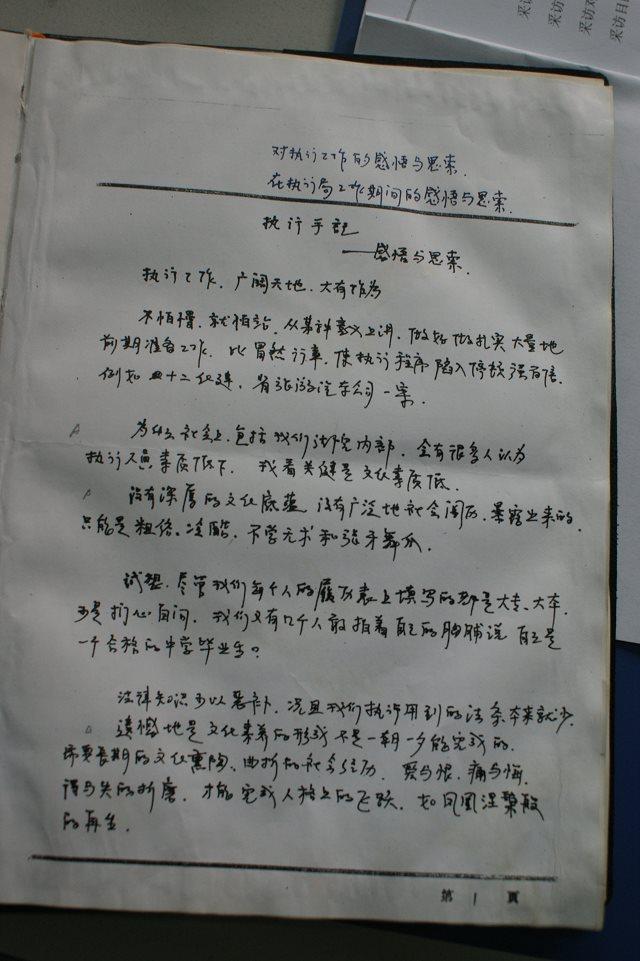 采访
采访
采访对
采访日
对执行工作的感悟与思索.
在执行局工作期间的感悟与思索.
执行手记
——感悟与思索.
执行工作、广阔天地、大有作为
不怕慢、就怕站、从某种意义上讲, 做好做扎实大量地
前期准备工作, 比冒然行事, 使执行程序陷入停顿强百倍.
例如 四十二 汽车公司一案.
为什么社会上、包括我们法院内部, 会有很多人认为
执行人员素质低下. 我看关健是文化素质低.
没有深厚的文化底蕴 没有广泛地社会阅历, 暴露出来的,
只能是粗俗、冷酷, 不学无术和张牙舞爪.
试想, 尽管我们每个人的履历表上填写的都是大专、大本,
可是扪心自问, 我们又有几个人敢拍着自己的胸脯说 自己是
一个合格的中学毕业生?
法律知识可以恶补, 况且我们执行用到的法条本来就少,
遗憾地是文化素养的形成 不是一朝一夕能完成的.
需要长期的文化熏陶、曲折的社会经历, 爱与恨, 痛与悔,
得与失的折磨, 才能完成人格上的飞跃, 如凤凰涅槃般
的再生.
第 1 页